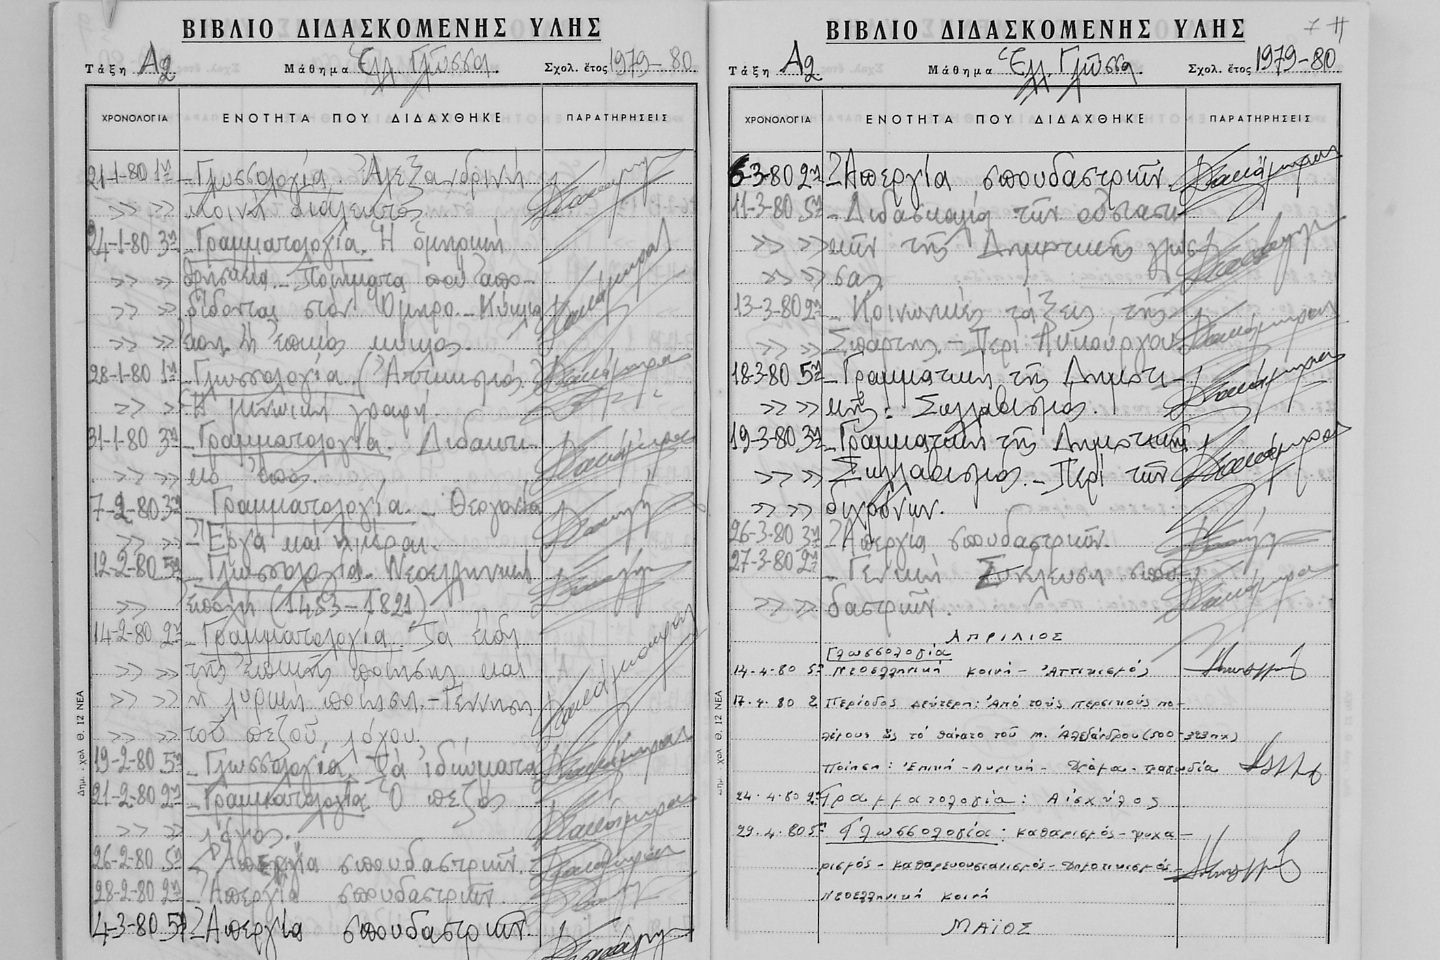 ΒΙΒΛΙΟ ΔΙΔΑΣΚΟΜΕΝΗΣ ΥΛΗΣ
Τάξη Α2 Μάθημα Ἑλλ. Γλῶσσα Σχολ. ἔτος 1979-80
ΧΡΟΝΟΛΟΓΙΑ ΕΝΟΤΗΤΑ ΠΟΥ ΔΙΔΑΧΘΗΚΕ ΠΑΡΑΤΗΡΗΣΕΙΣ
21-1-80 1η - Γλωσσολογία. Ἀλεξανδρινή
>> >> κοινή διάλεκτος
24-1-80 3η - Γραμματολογία. Ἡ ὁμηρική
- Ποιήματα πού ἀπο-
>> >> δίδονται στόν Ὅμηρο. - Κύκλια
>> >> ἔπη ἤ ἐπικός κύκλος.
28-1-80 1η - Γλωσσολογία. (Ἀττικισμός)
>> >> Ἡ μινωική γραφή.
31-1-80 3η - Γραμματολογία. Διδακτι-
κό ἔπος.
7-2-80 3η Γραμματολογία. - Θεογονία
>> >> Ἔργα καί ἡμέραι.
12-2-80 5η - Γλωσσολογία. Νεοελληνική
>> >> ἐποχή (1453-1821)
14-2-80 2η - Γραμματολογία. Τα εἴδη
>> >> τῆς ἐπικῆς ποίησης καί
>> >> ἡ λυρική ποίηση. - Γέννηση
>> >> τοῦ πεζοῦ λόγου.
19-2-80 5η - Γλωσσολογία. Τά ἰδιώματα
21-2-80 2η - Γραμματολογία. Ὁ πεζός
>> >> λόγος.
26-2-80 5η Ἀπεργία σπουδαστριῶν.
28-2-80 2η Ἀπεργία σπουδαστριῶν.
4-3-80 5η Ἀπεργία σπουδαστριῶν.
Θ. 12 ΝΕΑ
ΒΙΒΛΙΟ ΔΙΔΑΣΚΟΜΕΝΗΣ ΥΛΗΣ
Τάξη Α2 Μάθημα Ἑλλ. Γλῶσσα Σχολ. ἔτος 1979-80
ΧΡΟΝΟΛΟΓΙΑ ΕΝΟΤΗΤΑ ΠΟΥ ΔΙΔΑΧΘΗΚΕ ΠΑΡΑΤΗΡΗΣΕΙΣ
6-3-80 2η Ἀπεργία σπουδαστριῶν
11-3-80 5η - Διδασκαλία τῶν οὐσιαστι-
>> >> κῶν τῆς Δημοτικῆς γλώσ-
>> >> σας.
13-3-80 2η - Κοινωνικές τάξεις τῆς
>> >> Σπάρτης. - Περί Λυκούργου.
18-3-80 5η - Γραμματική τῆς Δημοτι-
>> >> κῆς: Συλλαβισμός.
19-3-80 3η - Γραμματική τῆς Δημοτικῆς
>> >> Συλλαβισμός. - Περί τῶν
>> >> διχρόνων.
26-3-80 3η Ἀπεργία σπουδαστριῶν.
27-3-80 2η - Γενική Συνέλευση σπου-
>> >> δαστριῶν.
ΑΠΡΙΛΙΟΣ
Γλωσσολογία
14-4-80 5η Νεοελληνική κοινή - Ἀττικισμός
17-4-80 2 Περίοδος δεύτερη: Ἀπό τούς περσικούς πο-
λέμους ὥς τό θάνατο τοῦ Μ. Ἀλεξάνδρου (500-323 π.χ)
Ποίηση: Ἐπική - Λυρική - Δράμα - τραγωδία
24-4-80 2η Γραμματολογία: Αἰσχύλος
29-4-80 5η Γλωσσολογία: Καθαρισμός - ψυχα-
ρισμός - καθαρευουσιανισμός - Δημοτικισμός
Νεοελληνική κοινή
ΜΑΪΟΣ
Θ. 12 ΝΕΑ